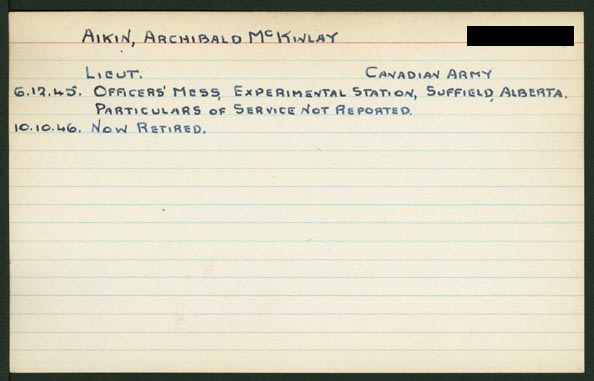 Aikin, Archibald McKinlay
Lieut. Canadian Army
6.12.45. Officers' Mess, Experimental Station, Suffield, Alberta.
Particulars of Service Not Reported.
10.10.46. Now Retired.